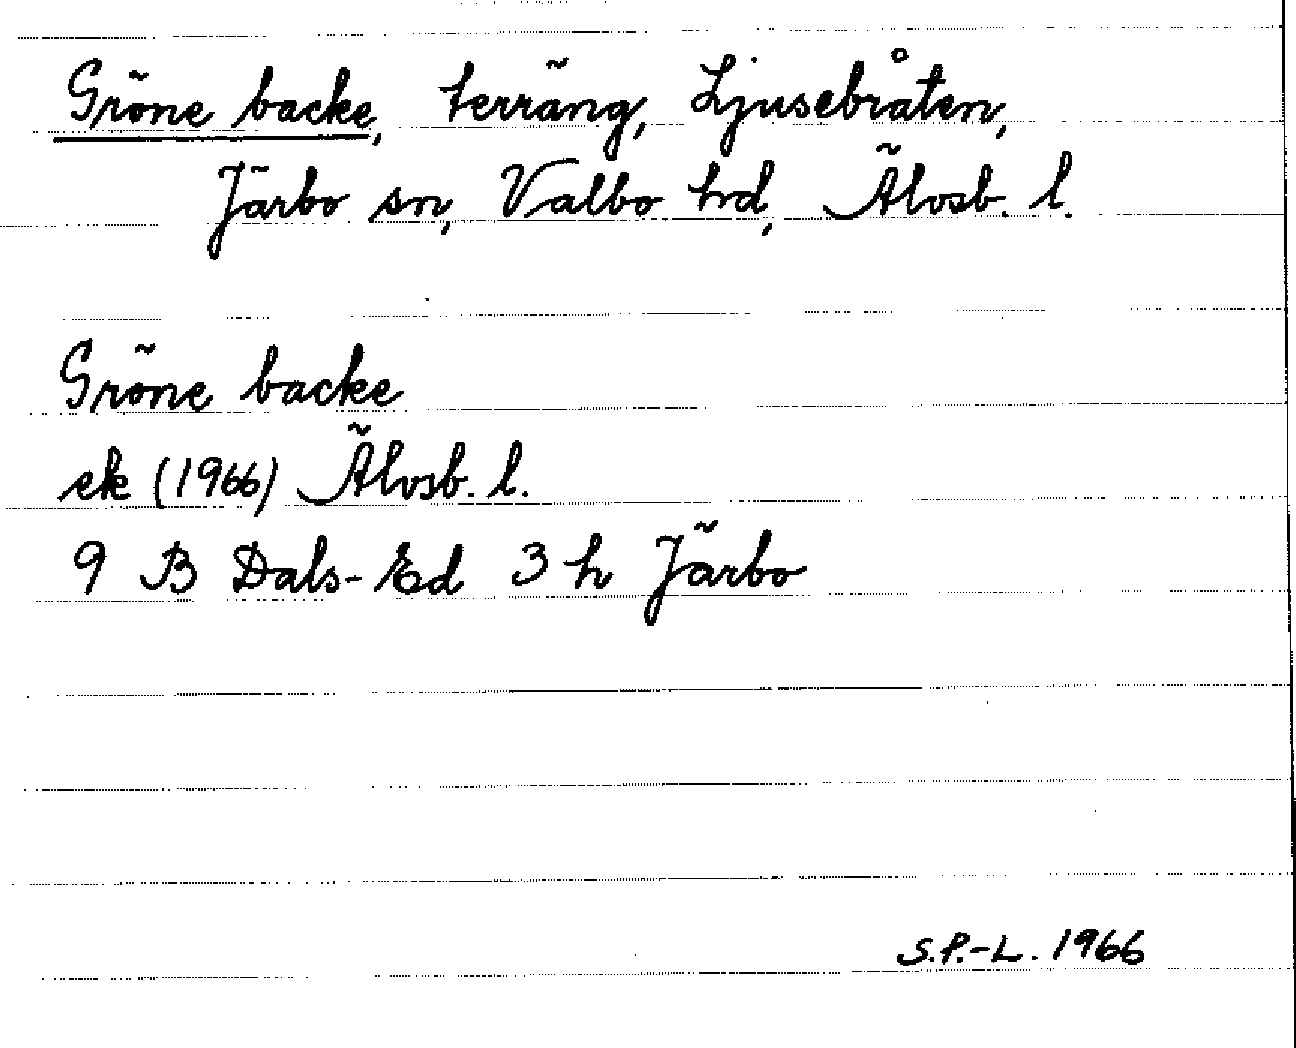 Gröne backe, terräng, Ljusebråten,
Järbo sn, Valbo hd, Älvsb. l.
Gröne backe
ek (1966) Älvsb. l.
9 B Dals-Ed 3 h Järbo
S.P.-L. 1966